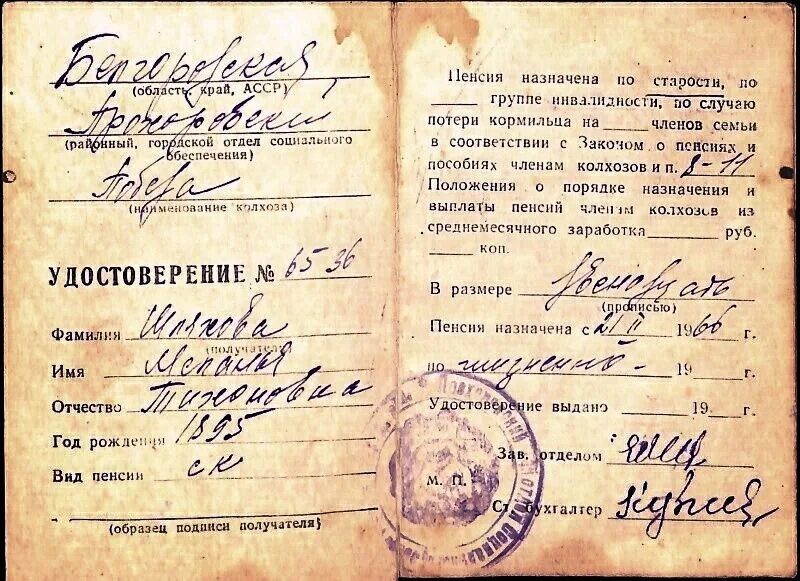 Белгородская
(область, край, АССР)
Прохоровский
(районный, городской отдел социального
обеспечения)
Победа
(наименование колхоза)
УДОСТОВЕРЕНИЕ № 6536
Фамилия Шляхова
(получателя)
Имя Меланья
Отчество Тихоновна
Год рождения 1895
Вид пенсии ск
(образец подписи получателя)
Пенсия назначена по старости, по
группе инвалидности, по случаю
потери кормильца на членов семьи
в соответствии с Законом о пенсиях и
пособиях членам колхозов и п. 8-11
Положения о порядке назначения и
выплаты пенсий членам колхозов из
среднемесячного заработка руб.
коп.
В размере двенадцать
(прописью)
Пенсия назначена с 21 II 1966 г.
по жизненно - 19 г.
Удостоверение выдано 19 г.
Зав. отделом
М. П.
Ст. бухгалтер